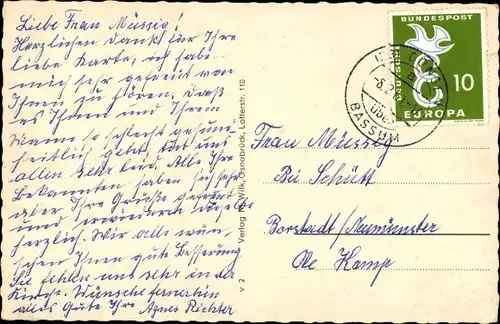 Liebe Frau Müssig!
Herzlichen Dank für Ihre
liebe Karte, ich habe
mich sehr gefreut von
Ihnen zu hören, daß
es Ihnen und Ihrem
Manne so schlecht gesund-
heitlich geht, tut uns
allen sehr leid. Alle Ihre
Bekannten haben sich sehr
über Ihre Grüße gefreut
und erwiedern dieselbe
herzlich. Wir alle wün-
schen Ihnen gute Besserung
Sie fehlen uns sehr in der
Kirche. Wünsche fernerhin
alles Gute Ihre Agnes Richter
Verlag Wilk, Osnabrück, Lotterstr. 110
V 2
DEUTSCHE
BUNDESPOST
10
EUROPA
über
BASSUM
Frau Müssig
Bei Schütt
Borstadt/Neumünster
Oe Kamp